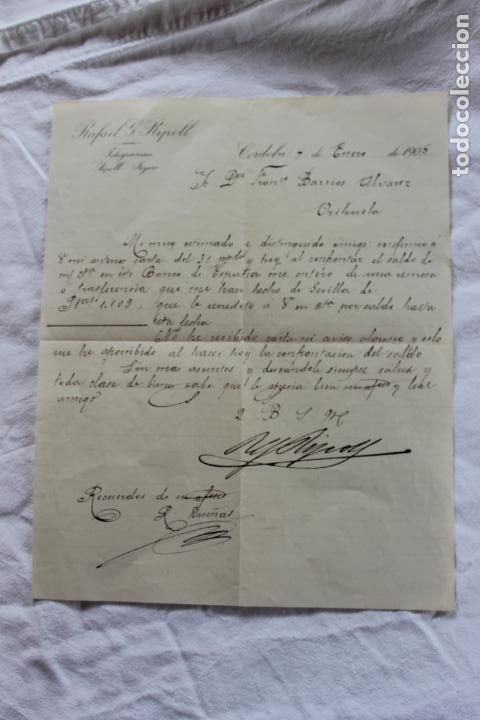 Rafael G. Ripoll
Telegramas
Ripoll - Seguro
Cordoba 7 de Enero de 1905
Sr Dn Franco Barrios Alvarez
Orihuela
Mi muy estimado e distinguido amigo confirmo á
V mi carta del 31 ppdo y hoy al confrontar el saldo de
mi cta en este Banco de España me entero de una remesa
ó trasferencia que me han hecho de Sevilla de
Ptas 1.109. que le acredito á V en cta por saldo hasta
esta fecha
No he recibido carta ni aviso alguno y solo
me he apercibido al hacer hoy la confrontacion del saldo
Sin mas asuntos y deseandole siempre salud y
toda clase de bienes sabe que le aprecia bien y leal
amigo
Q B S M
Ripoll
Recuerdos de
R. Dueñas
todocoleccion